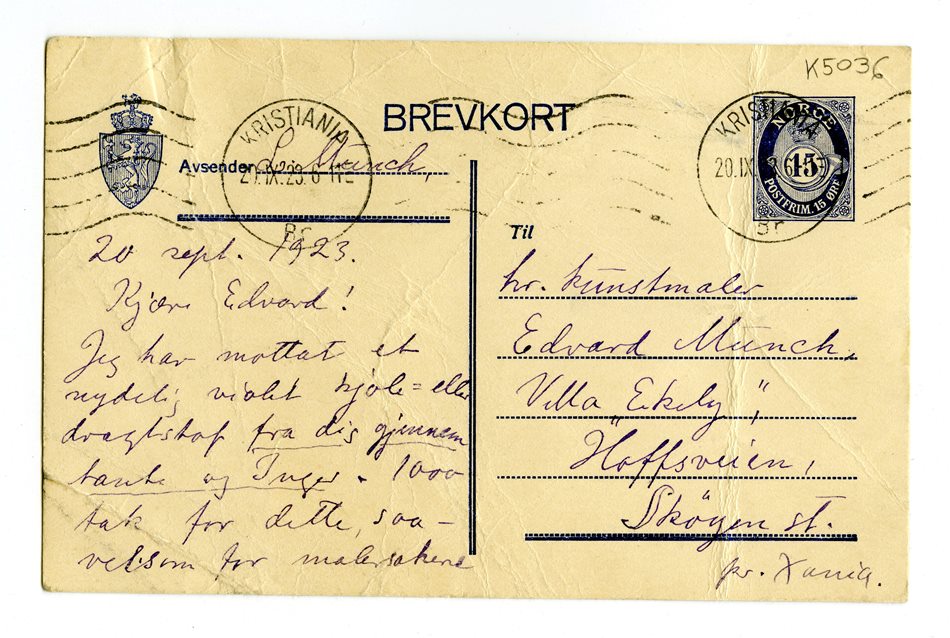 K5036
BREVKORT
KRISTIANIA
20.IX.23.6-11E
Br
KRISTIANIA
20.IX.23.6-11E
Br
NORGE
15
POSTFRIM. 15 ØRE
Avsender L. Munch,
20 sept. 1923.
Kjære Edvard!
Jeg har mottat et
nydelig violet kjole= eller
dragtstof fra dig gjennem
tante og Inger. 1000
tak for dette, saa-
velsom for malersakene
Til
hr. Kunstmaler
Edvard Munch,
Villa "Ekely",
Hoffsveien,
Skøyen st.
pr. Xania.